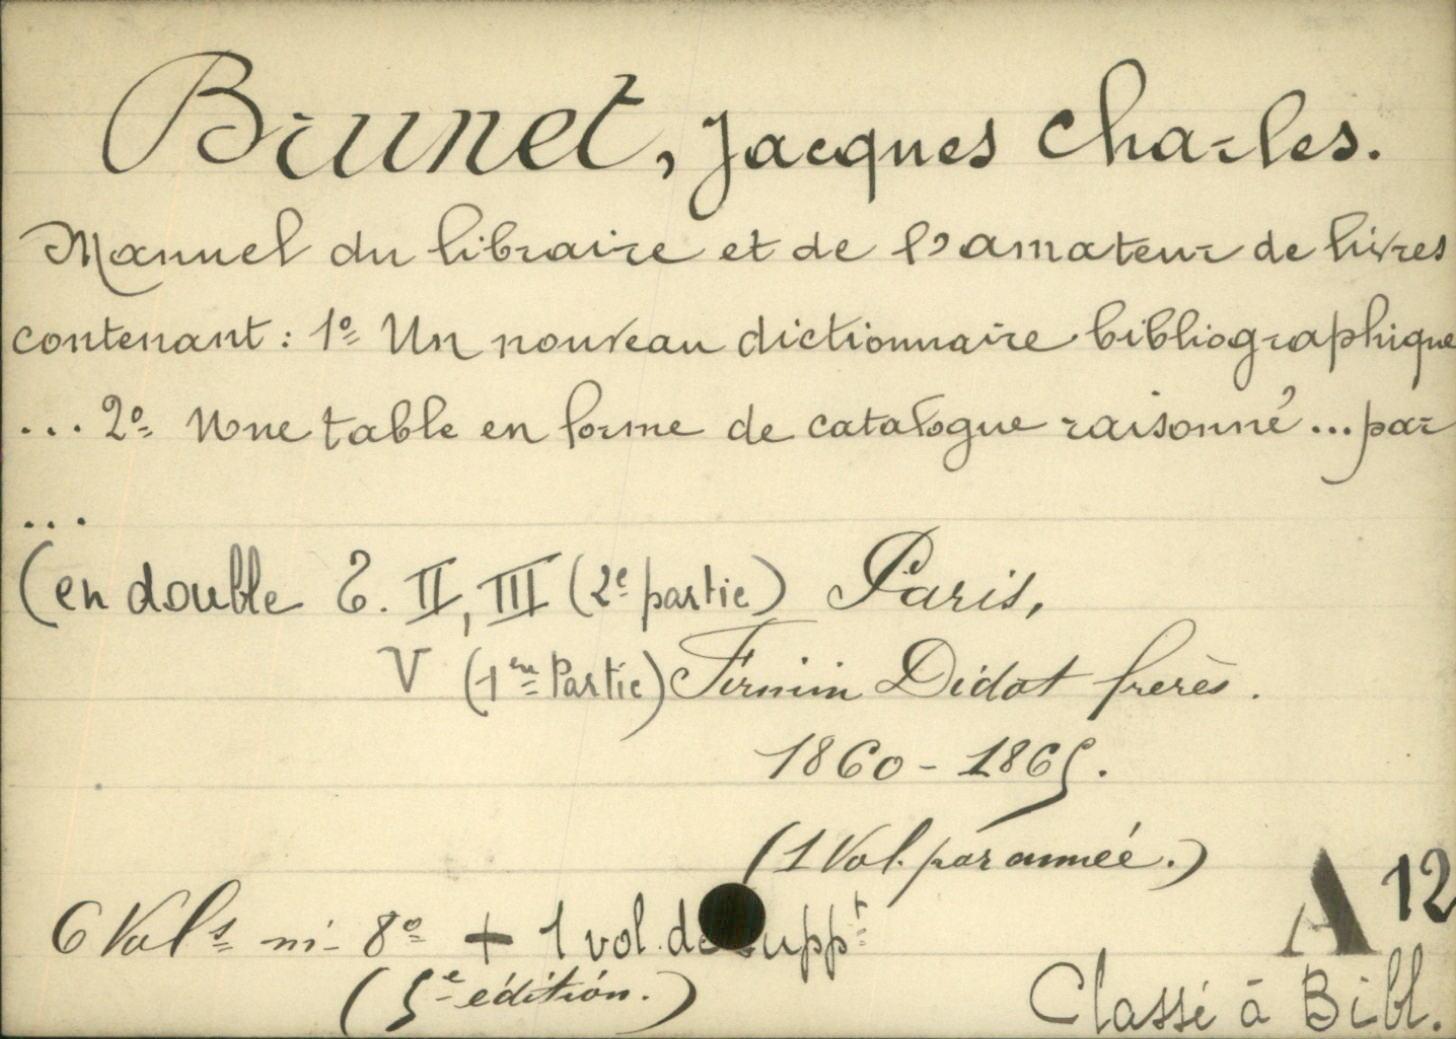 Brunet, Jacques Charles.
Manuel du libraire et de l'amateur de livres
contenant : 1º Un nouveau dictionnaire bibliographique
... 2º Une table en forme de catalogue raisonné ... par
...
(en double T. II, III (2e partie) Paris,
V (1ere Partie) Firmin Didot frères.
1860 - 1865.
(1 Vol. par année.)
A 12
6 Vols in-8º + 1 vol. de suppt
(5e édition.)
Classé à Bibl.